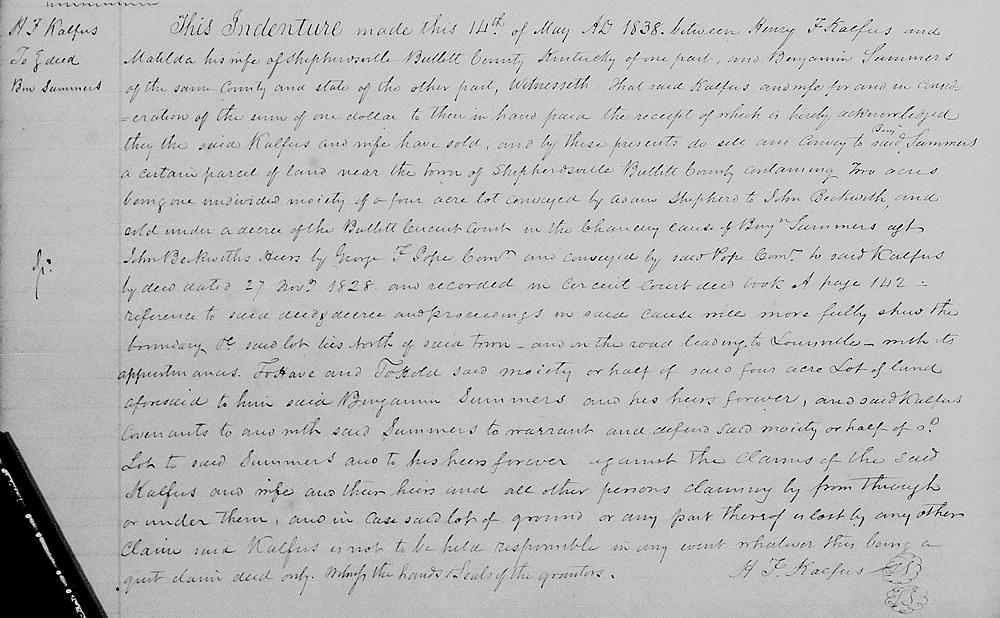 H F Kalfus
To } deed
Bn Summers
This Indenture made this 14th of May AD 1838. between Henry F Kalfus and
Matilda his wife of Shepherdsville Bullitt County Kentucky of one part, and Benjamin Summers
of the same County and state of the other part, Witnesseth That said Kalfus and wife for and in consid=
=eration of the sum of one dollar to them in hand paid the receipt of which is hereby acknowledged
they the said Kalfus and wife have sold, and by these presents do sell and convey to said Benj Summers
a certain parcel of land near the town of Shepherdsville Bullitt County containing Two acres
being one undivided moiety of a four acre lot conveyed by Adam Shepherd to John Beckwith, and
sold under a decree of the Bullitt Circuit Court in the Chancery cause of Benjn Summers agt
John Beckwiths Heirs by George F Pope Comr and conveyed by said Pope Comr to said Kalfus
by deed dated 27 Novr 1828. and recorded in circuit court deed book A page 142 -
reference to said deed & decree and proceedings in said cause will more fully shew the
boundary &c said lot lies North of said town - and on the road leading to Louisville - with its
appurtenances. To Have and To Hold said moiety or half of said four acre Lot of land
aforesaid to him said Benjamin Summers and his heirs forever, and said Kalfus
covenants to and with said Summers to warrant and defend said moiety or half of sd
Lot to said Summers and to his heirs forever against the claims of the said
Kalfus and wife and their heirs and all other persons claiming by from through
or under them, and in case said lot of ground or any part thereof is lost by any other
claim said Kalfus is not to be held responsible in any event whatever this being a
quit claim deed only. Witness the hands & Seals of the grantors.
H F. Kalfus LS
LS